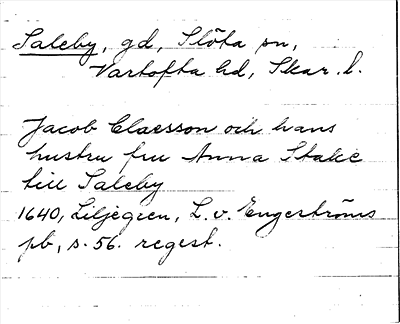 Saleby, gd, Slöta sn,
Vartofta hd, Skar. l.
Jacob Claesson och hans
hustru fru Anna Stake
till Saleby
1640, Liljegren, L. v. Engeströms
pb, s. 56. regest.